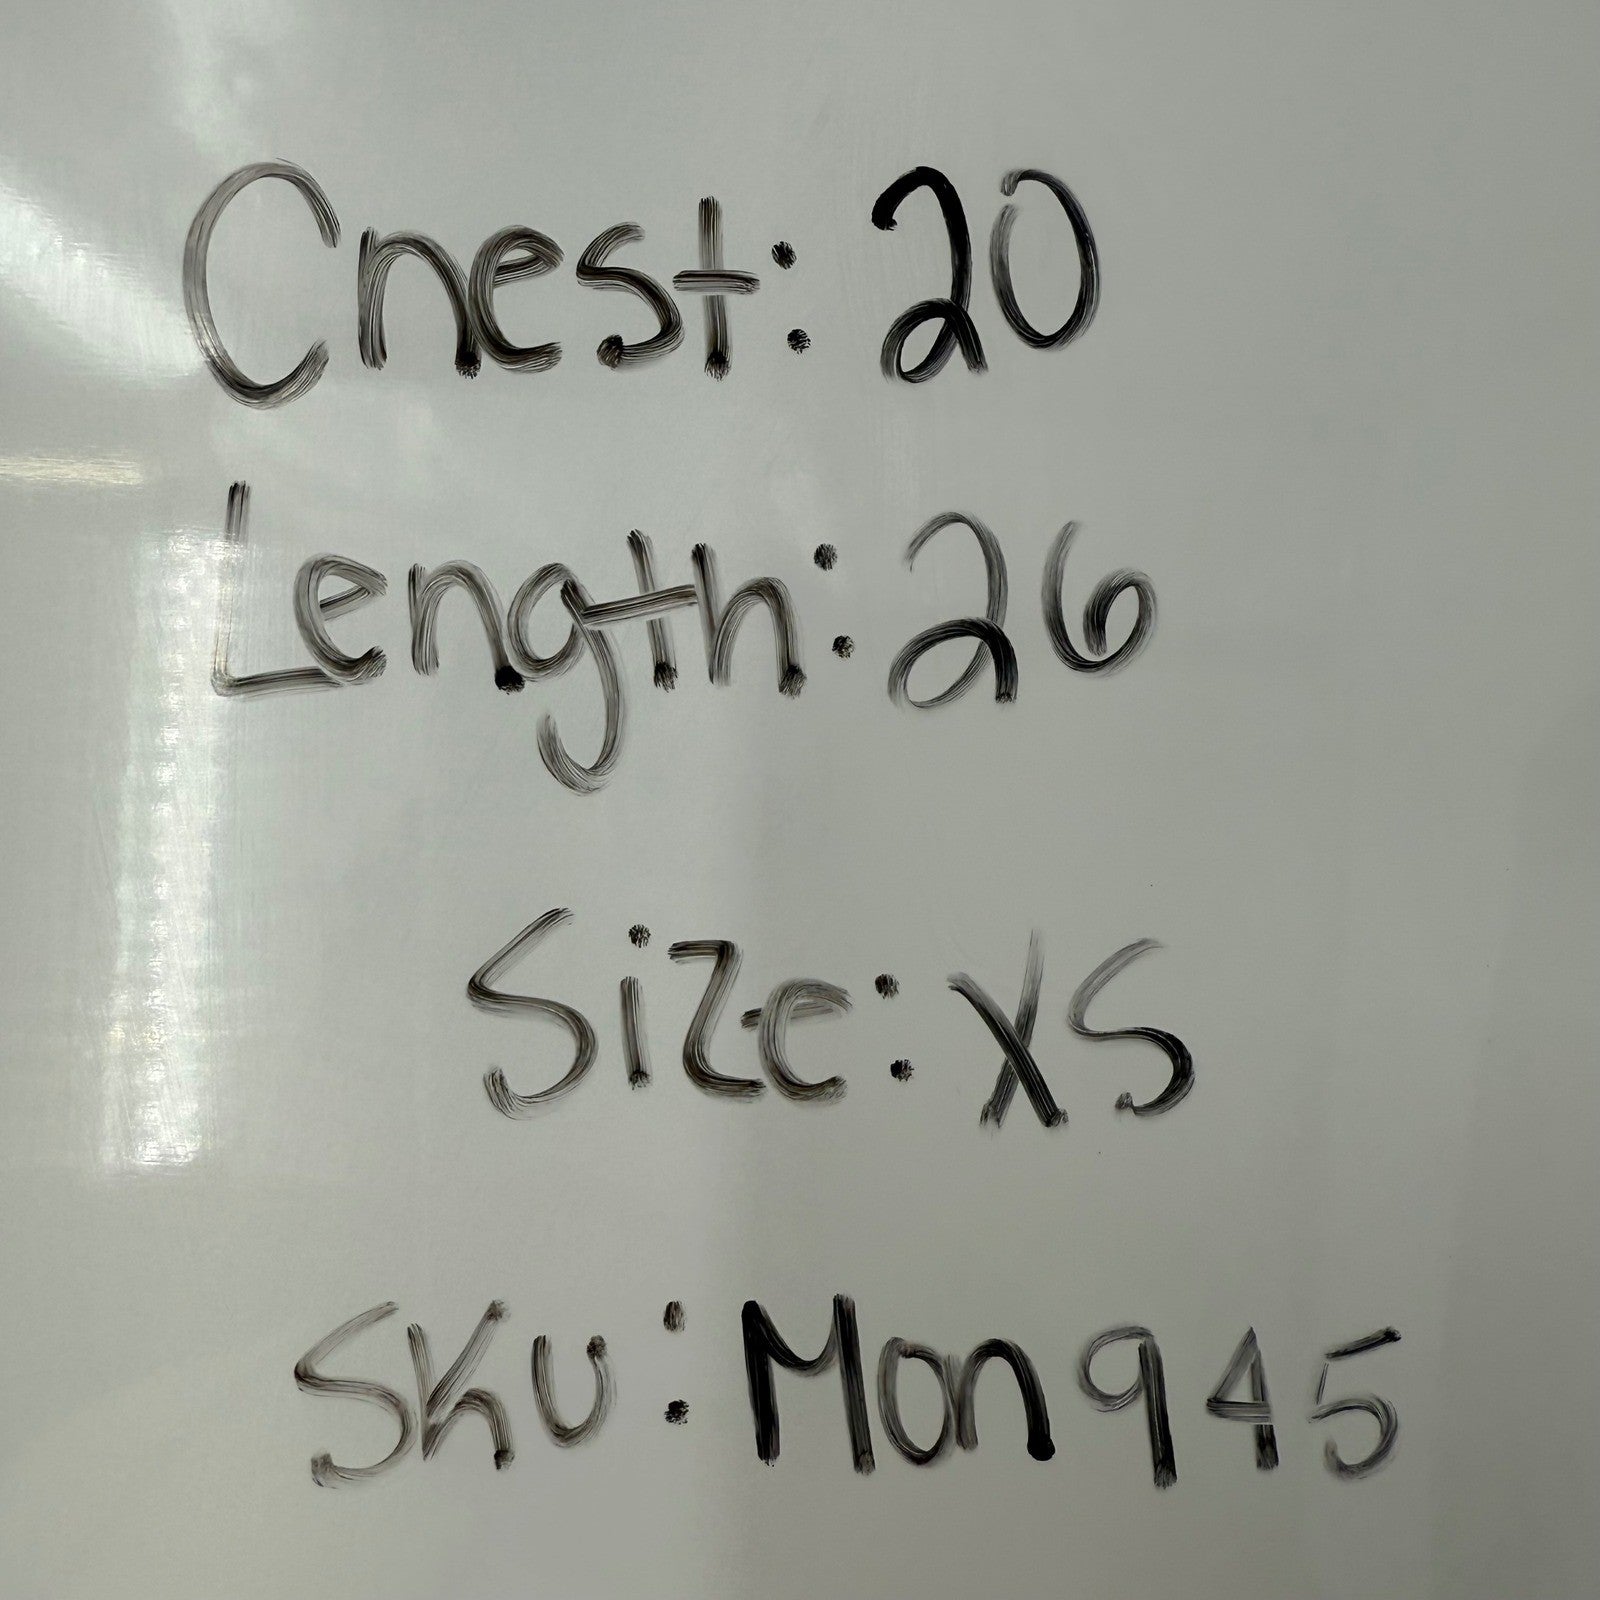 Chest: 20
Length: 26
Size: XS
SKU: Mon945